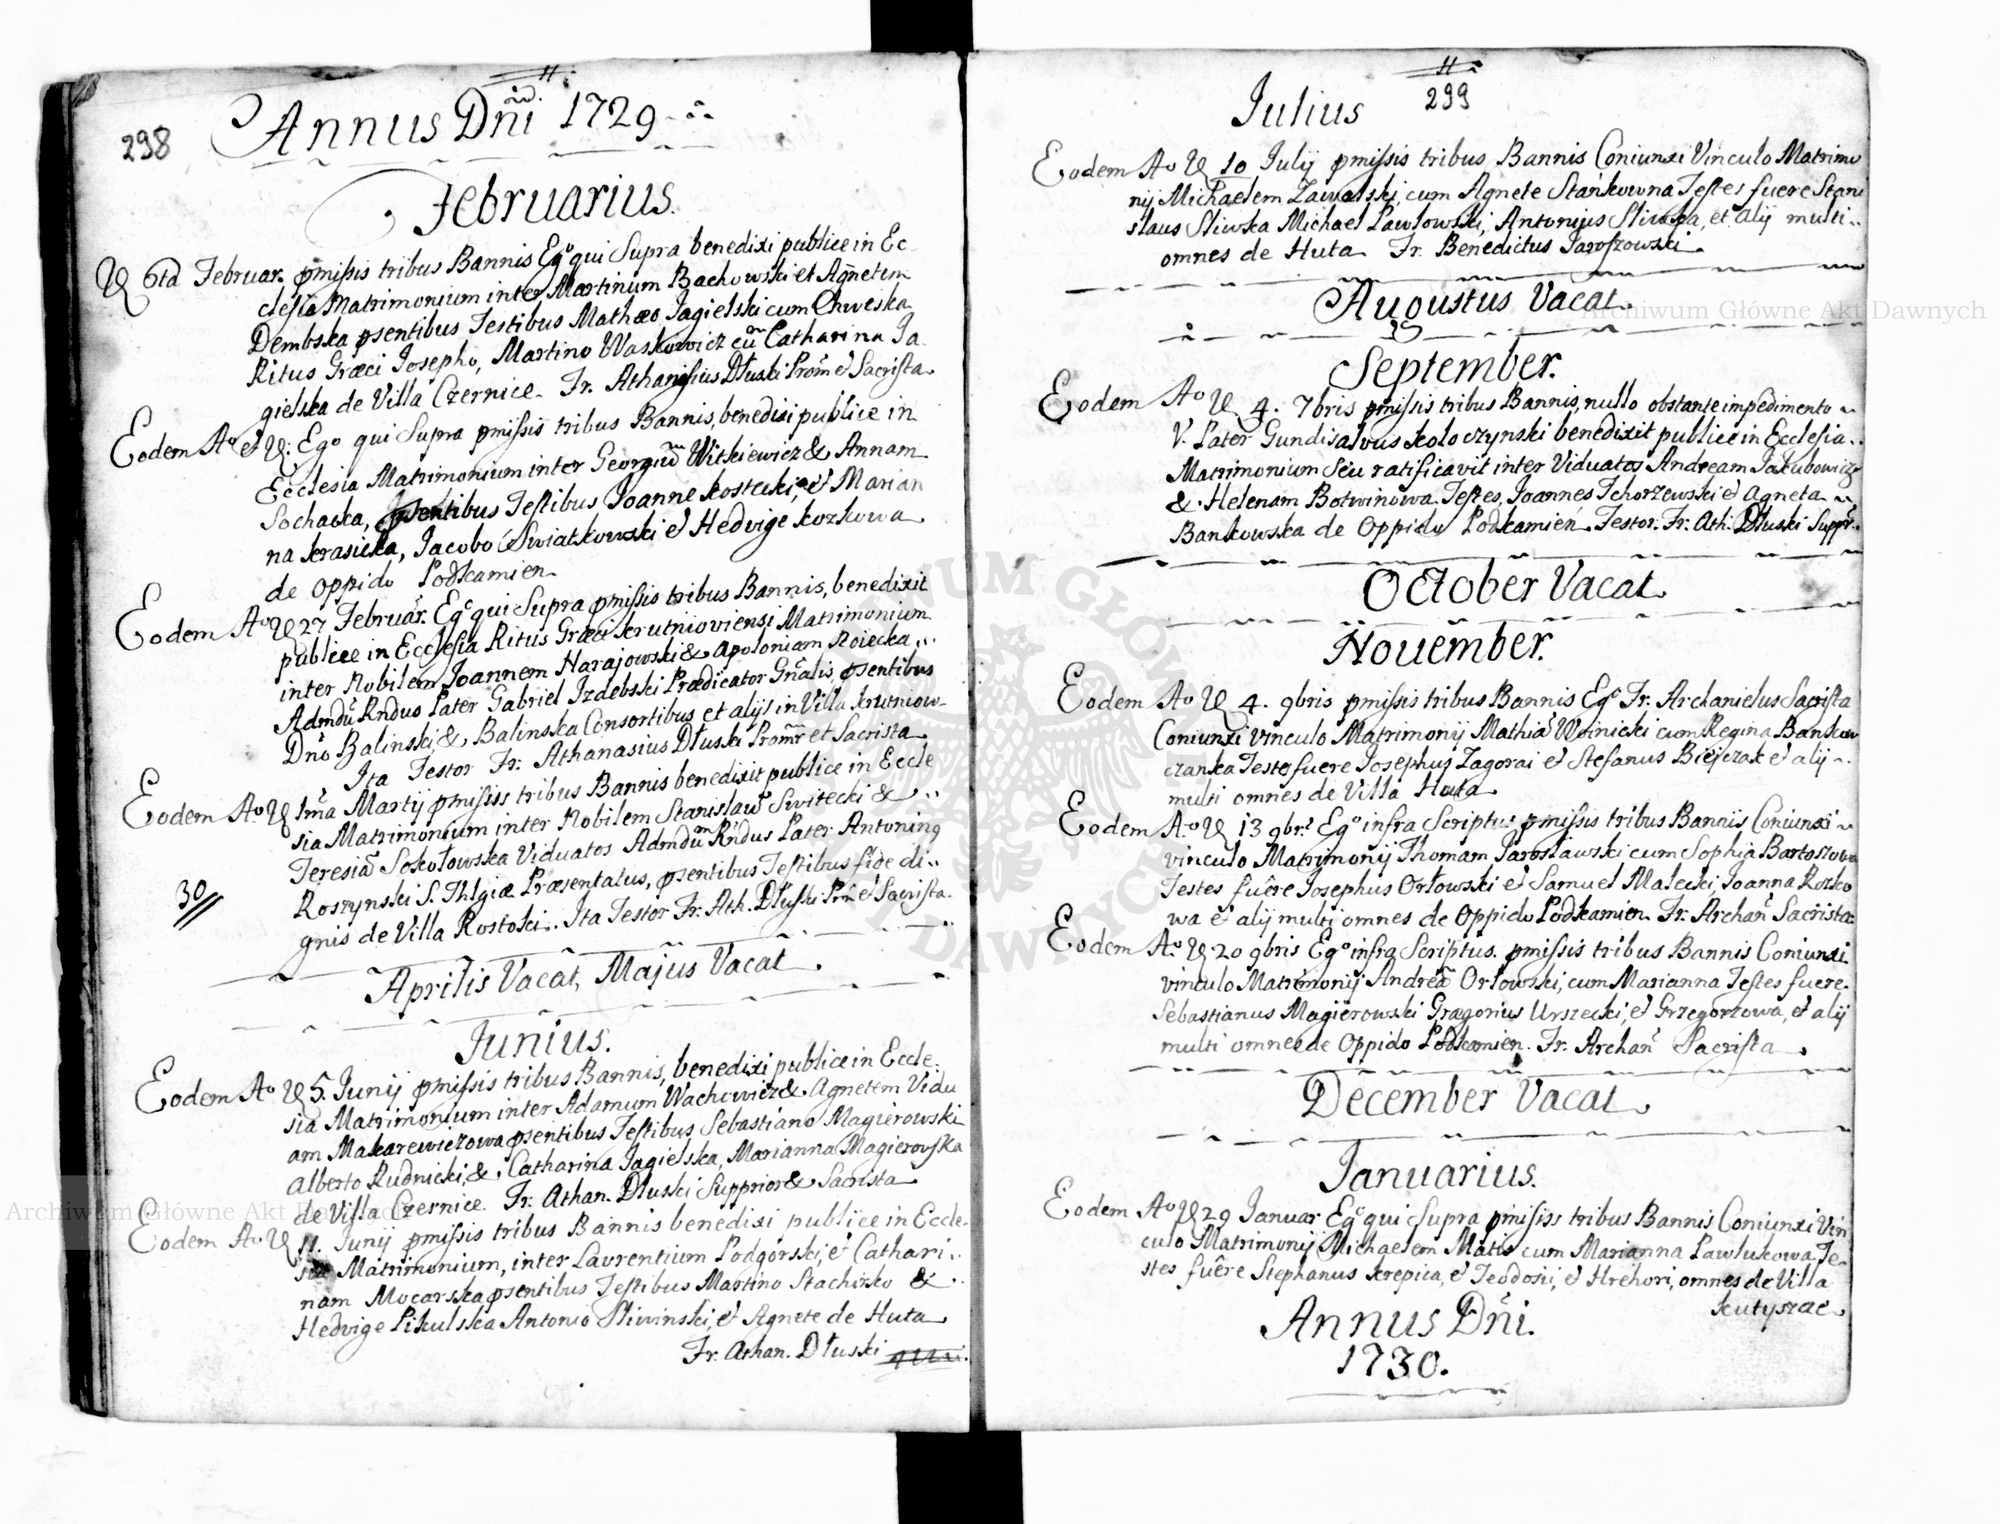 298
Annus Dñi 1729
Februarius.
D 6ta Februar. pmissis tribus Bannis Ego qui Supra benedixi publice in Ec
clesia Matrimonium inter Martinum Bachowski et Agnetem
Dembska psentibus Testibus Mathæo Jagielski cum Chweska
Ritus Græci Josepho, Martino Waskowicz cum Catharina Ja
gielska de Villa Czernice. Fr. Athanasius Dłuski Prom et Sacrista
Eodem Ao et D: Ego qui Supra pmissis tribus Bannis, benedixi publice in
Ecclesia Matrimonium inter Georgiu Witkiewicz & Annam
Sochacka, psentibus Testibus Joanne Kostecki, et Marian
na Krasicka, Jacobo Swiatkowski et Hedvige Kozkowa
de Oppido Podkamien
Eodem Ao D 27 Februar. Ego qui Supra pmissis tribus Bannis, benedixit
publice in Ecclesia Ritus Græci Krutnioviensi Matrimonium
inter Nobilem Joannem Harajowski & Apoloniam Roiecka
Admdu Rnduo Pater Gabriel Izdebski Prædicator Gnalis, psentibus
Dño Balinski & Balinska Consortibus et alijs in Villa Krutniow
Ita Testor Fr. Athanasius Dłuski Promr et Sacrista
Eodem Ao D 1ma Martij pmissis tribus Bannis benedixit publice in Eccle
sia Matrimonium inter Nobilem Stanislau Switecki &
Teresia Sokołowska Viduatos Admdum Rndus Pater Antoning
Roszynski S. Thlgiæ Præsentatus, psentibus Testibus fide di
gnis de Villa Rostoki. Ita Testor Fr. Ath. Dłuski Prm et Sacrista
30
Aprilis Vacat, Majus Vacat.
Junius.
Eodem Ao D 5. Junij pmissis tribus Bannis, benedixi publice in Eccle
sia Matrimonium inter Adamum Wachowicz & Agnetem Vidu
am Makarewiczowa psentibus Testibus Sebastiano Magierowski
Alberto Rudnicki, & Catharina Jagielska, Marianna Magierowska
de Villa Czernice. Fr. Athan. Dłuski Supprior & Sacrista
Eodem Ao D 11. Junij pmissis tribus Bannis benedixi publice in Eccle
sia Matrimonium, inter Laurentium Podgorski, et Cathari
nam Mocarska psentibus Testibus Martino Stachirko &
Hedvige Pikulska Antonio Sliwinski, et Agnete de Huta
Fr. Athan. Dłuski
299
Julius
Eodem Ao D 10 Julij pmissis tribus Bannis Coniunxi Vinculo Matrimo
nij Michaelem Zawalski, cum Agnete Stankowna Testes fuere Stani
slaus Sliwka Michael Pawlowski, Antonius Sliwka, et alij multi
omnes de Huta Fr. Benedictus Jaroszowski
Augustus Vacat.
September.
Eodem Ao D 4. 7bris pmissis tribus Bannis, nullo obstante impedimento
V. Pater Gundisalvus Koloczynski benedixit publice in Ecclesia
Matrimonium Seu ratificavit inter Viduatos Andream Jakubowicz
& Helenam Botwinowa. Testes, Joannes Tchorzewski et Agneta
Bankowska de Oppido Podkamien Testor. Fr. Ath. Dłuski Suppr.
October Vacat
November.
Eodem Ao D 4. 9bris pmissis tribus Bannis Ego Fr. Archanielus Sacrista
Coniunxi vinculo Matrimonij Mathia Woinicki cum Regina Bankow
czanka Testes fuere Josephus Zagorai et Stefanus Bieyczak et alij
multi omnes de Villa Huta
Eodem Ao D 13 9bris Ego infra Scriptus pmissis tribus Bannis Coniunxi
vinculo Matrimonij Thomam Jarosławski cum Sophia Bartoszowa
Testes fuere Josephus Orłowski et Samuel Malecki, Joanna Rozko
wa et alij multi omnes de Oppido Podkamien Fr. Archan Sacrista
Eodem Ao D 20 9bris Ego infra Scriptus. pmissis tribus Bannis Coniunxi
vinculo Matrimonij Andrea Orłowski, cum Marianna Testes fuere
Sebastianus Magierowski Grægorius Urszecki, et Grzegorzowa, et alij
multi omnes de Oppido Podkamien. Fr. Archan Sacrista
December Vacat
Januarius.
Eodem Ao D 29 Januar Ego qui Supra pmissis tribus Bannis Coniunxi Vin
culo Matrimonij Michaelem Matis cum Marianna Pawlukowa, Te
stes fuere Stephanus Krepica, et Teodosij, et Hrehori, omnes de Villa
Kutyszae
Annus Dñi.
1730.
Archiwum Główne Akt Dawnych
Archiwum Główne Akt Dawnych
ARCHIWUM GŁÓWNE AKT DAWNYCH